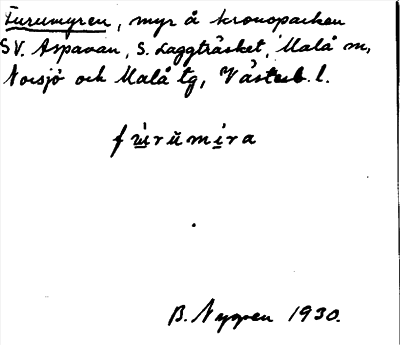 Furumyren, myr å kronoparken
SV. Aspavan, S. Laggträsket, Malå m,
Norsjö och Malå tg, Västerb. l.
fùrŭmìra
B. Nygren 1930.